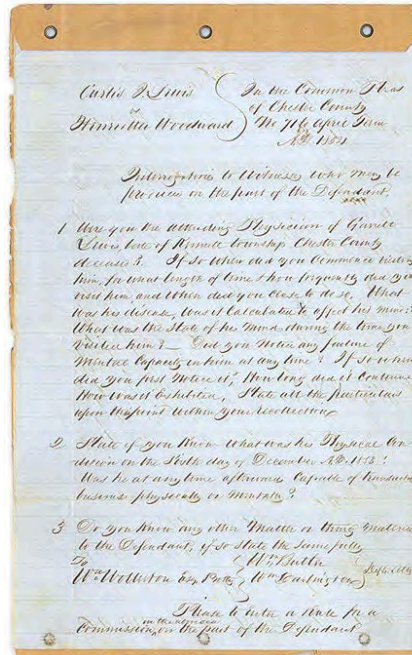 Curtis J. Lewis
vs
Henrietta Woodward
In the Common Pleas
of Chester County
No 716 April Term
AD. 1854
Interrogatories to Witnesses who may be
produced on the part of the Defendant.
1 Were you the attending Physician of
Lewis, late of township Chester County
deceased? If so when did you commence visiting
him, for what length of time & how frequently did you
visit him, and when did you cease to do so. What
was his disease, was it calculated to affect his mind?
What was the state of his mind during the time you
visited him? Did you notice any failure of
Mental Capacity in him at any time? If so when
did you first notice it, How long did it continue
How was it Exhibited, State all the particulars
upon this point within your recollection
2 State if you know what was his Physical Con
dition on the day of December A.D. 1853?
Was he at any time afterwards Capable of transacting
business physically or mentally?
3 Do you know any other Matter or thing material
to the Defendant, if so state the same fully
To
Wm Wollerton Esq
Wm Butler
Wm Darlington
Please to enter a rule for a
Commission, on the part of the Defendant